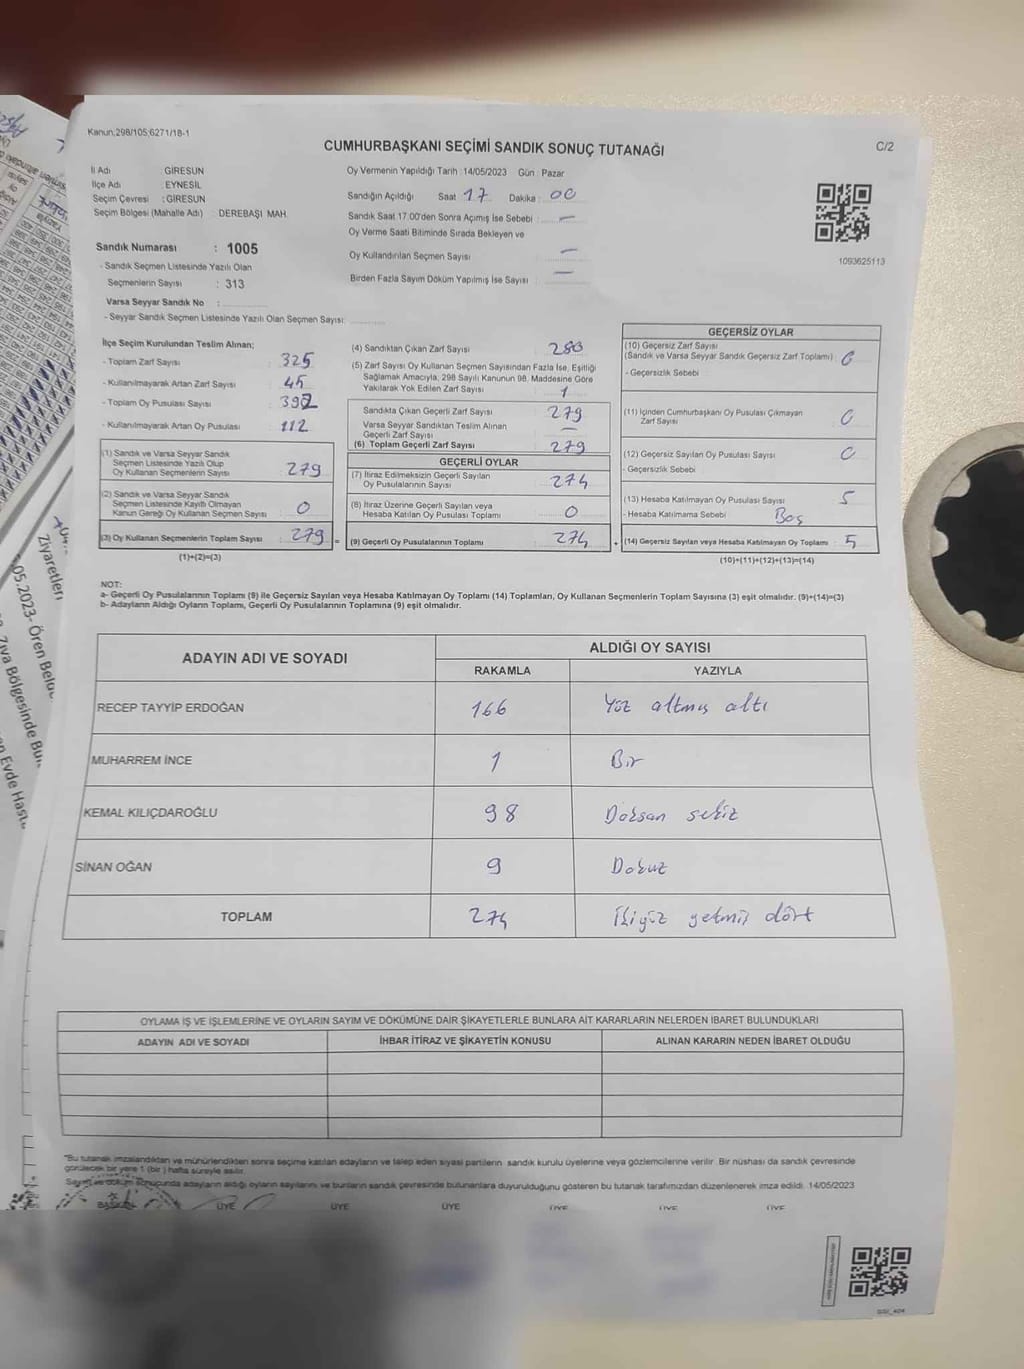 Kanun;298/105;6271/18-1
CUMHURBAŞKANI SEÇİMİ SANDIK SONUÇ TUTANAĞI
C/2
İl Adı : GİRESUN
İlçe Adı : EYNESİL
Seçim Çevresi : GİRESUN
Seçim Bölgesi (Mahalle Adı) : DEREBAŞI MAH.
Sandık Numarası : 1005
- Sandık Seçmen Listesinde Yazılı Olan
Seçmenlerin Sayısı : 313
Varsa Seyyar Sandık No :
- Seyyar Sandık Seçmen Listesinde Yazılı Olan Seçmen Sayısı:
Oy Vermenin Yapıldığı Tarih :14/05/2023 Gün : Pazar
Sandığın Açıldığı Saat 17 Dakika : 00
Sandık Saat 17.00'den Sonra Açımış İse Sebebi : —
Oy Verme Saati Bitiminde Sırada Bekleyen ve
Oy Kullandırılan Seçmen Sayısı : —
Birden Fazla Sayım Döküm Yapılmış İse Sayısı : —
1093625113
İlçe Seçim Kurulundan Teslim Alınan;
- Toplam Zarf Sayısı : 325
- Kullanılmayarak Artan Zarf Sayısı : 45
- Toplam Oy Pusulası Sayısı : 392
- Kullanılmayarak Artan Oy Pusulası : 112
(1) Sandık ve Varsa Seyyar Sandık
Seçmen Listesinde Yazılı Olup
Oy Kullanan Seçmenlerin Sayısı : 279
(2) Sandık ve Varsa Seyyar Sandık
Seçmen Listesinde Kayıtlı Olmayan
Kanun Gereği Oy Kullanan Seçmen Sayısı : 0
(3) Oy Kullanan Seçmenlerin Toplam Sayısı : 279
(1)+(2)=(3)
(4) Sandıktan Çıkan Zarf Sayısı : 280
(5) Zarf Sayısı Oy Kullanan Seçmen Sayısından Fazla İse, Eşitliği
Sağlamak Amacıyla, 298 Sayılı Kanunun 98. Maddesine Göre
Yakılarak Yok Edilen Zarf Sayısı : 1
Sandıkta Çıkan Geçerli Zarf Sayısı : 279
Varsa Seyyar Sandıktan Teslim Alınan
Geçerli Zarf Sayısı : —
(6) Toplam Geçerli Zarf Sayısı : 279
GEÇERLİ OYLAR
(7) İtiraz Edilmeksizin Geçerli Sayılan
Oy Pusulalarının Sayısı : 274
(8) İtiraz Üzerine Geçerli Sayılan veya
Hesaba Katılan Oy Pusulası Toplamı : 0
= (9) Geçerli Oy Pusulalarının Toplamı : 274
GEÇERSİZ OYLAR
(10) Geçersiz Zarf Sayısı
(Sandık ve Varsa Seyyar Sandık Geçersiz Zarf Toplamı) : 0
- Geçersizlik Sebebi :
(11) İçinden Cumhurbaşkanı Oy Pusulası Çıkmayan
Zarf Sayısı : 0
(12) Geçersiz Sayılan Oy Pusulası Sayısı : 0
- Geçersizlik Sebebi :
(13) Hesaba Katılmayan Oy Pusulası Sayısı : 5
- Hesaba Katılmama Sebebi : Boş
+ (14) Geçersiz Sayılan veya Hesaba Katılmayan Oy Toplamı : 5
(10)+(11)+(12)+(13)=(14)
NOT:
a- Geçerli Oy Pusulalarının Toplamı (9) ile Geçersiz Sayılan veya Hesaba Katılmayan Oy Toplamı (14) Toplamları, Oy Kullanan Seçmenlerin Toplam Sayısına (3) eşit olmalıdır. (9)+(14)=(3)
b- Adayların Aldığı Oyların Toplamı, Geçerli Oy Pusulalarının Toplamına (9) eşit olmalıdır.
ADAYIN ADI VE SOYADI
ALDIĞI OY SAYISI
RAKAMLA YAZIYLA
RECEP TAYYİP ERDOĞAN 166 Yüz altmış altı
MUHARREM İNCE 1 Bir
KEMAL KILIÇDAROĞLU 98 Doksan sekiz
SİNAN OĞAN 9 Dokuz
TOPLAM 274 İkiyüz yetmiş dört
OYLAMA İŞ VE İŞLEMLERİNE VE OYLARIN SAYIM VE DÖKÜMÜNE DAİR ŞİKAYETLERLE BUNLARA AİT KARARLARIN NELERDEN İBARET BULUNDUKLARI
ADAYIN ADI VE SOYADI İHBAR İTİRAZ VE ŞİKAYETİN KONUSU ALINAN KARARIN NEDEN İBARET OLDUĞU
"Bu tutanak imzalandıktan ve mühürlendikten sonra seçime katılan adayların ve talep eden siyasi partilerin sandık kurulu üyelerine veya gözlemcilerine verilir. Bir nüshası da sandık çevresinde
görülecek bir yere 1 (bir ) hafta süreyle asılır.
Sayım ve döküm sonucunda adayların aldığı oyların sayılarını ve bunların sandık çevresinde bulunanlara duyurulduğunu gösteren bu tutanak tarafımızdan düzenlenerek imza edildi. 14/05/2023
BAŞKAN ÜYE ÜYE ÜYE ÜYE ÜYE ÜYE
Ziyaretleri
.05.2023- Ören Belde
Ziva Bölgesinde
Evde Hast